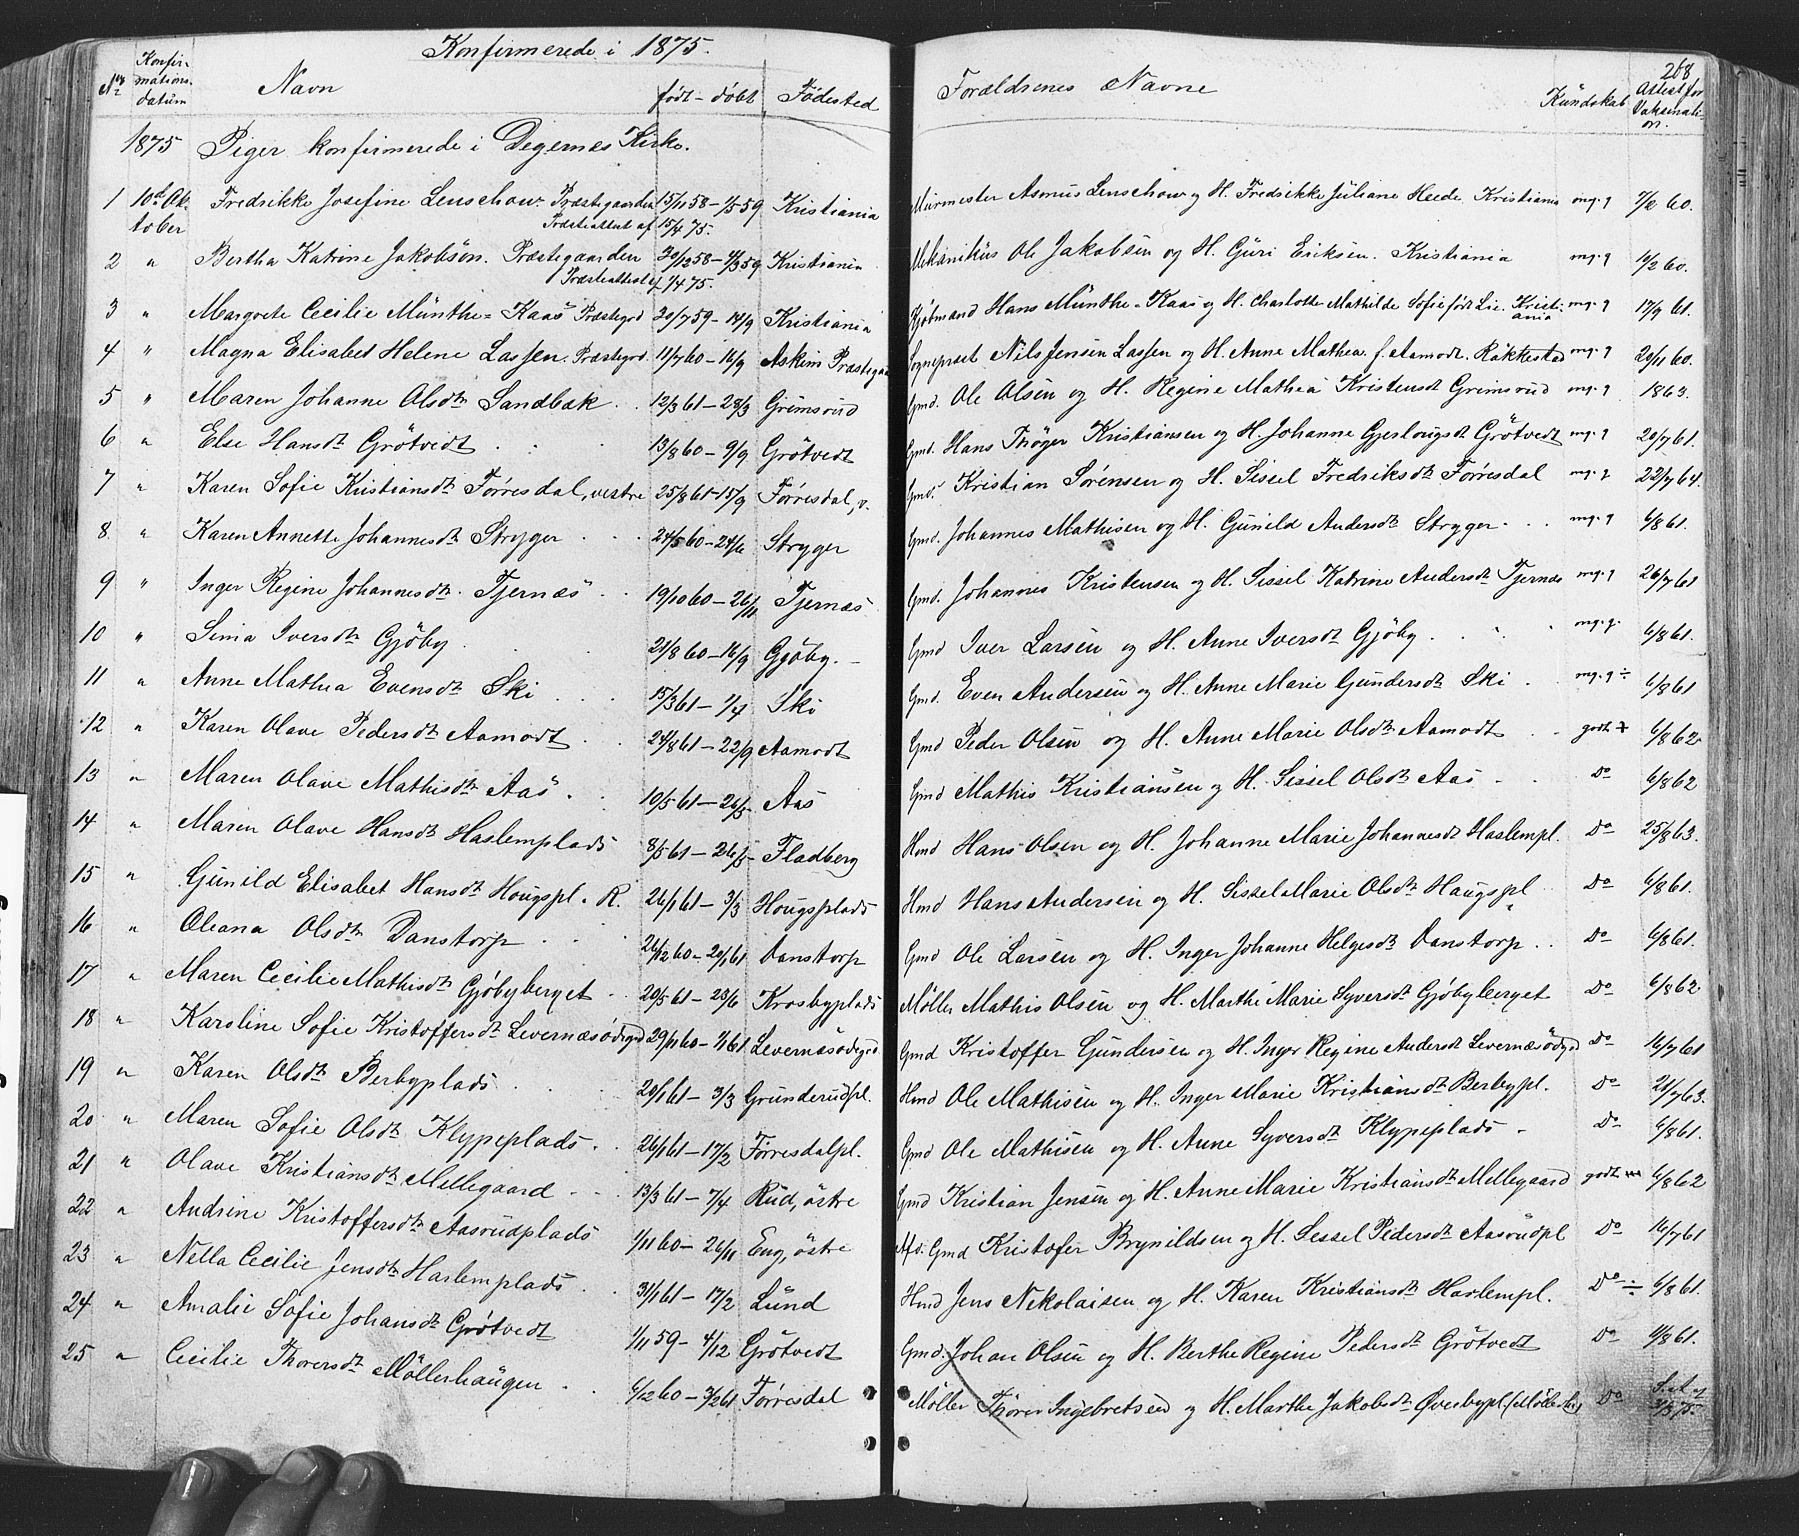 Konfirmerede i 1875.
No Konfirmations datum Navn født - døbt Födested Forældrenes Navne Kundskab Attest for Vaksination. 268
1875 Piger konfirmerede i Degernes Kirke.
1 10de Oktober Fredrikke Josefine Lenschow. Præstegaarden 15/11 58 - 1/5 59 Kristiania Murmester Asmus Lenschow og H. Fredrikke Juliane Heede Kristiania mg. g 7/2 60.
Præsteattest af 15/4 75.
2 " Bertha Katrine Jakobsön. Præstegaarden 30/12 58 - 4/3 59 Kristiania Mekanikus Ole Jakobsen og H. Guri Eriksen. Kristiania mg. g 10/2 60.
Præsteattest af 1/4 75.
3 " Margrete Cecilie Münthe-Kaas Præstegrd 20/7 59 - 14/9 Kristiania Kjøbmand Hans Münthe-Kaas og H. Charlotte Mathilde Sofie født Lie. Kristiania mg. g 17/9 61.
4 " Magna Elisabet Helene Lassen. Præstegrd. 11/7 60 - 16/9 Askim Præstegaa Sognepræst Nils Jensen Lassen og H. Anne Mathea f. Aamodt. Rakkestad mg. g 20/11 60.
5 " Maren Johanne Olsdtr Sandbæk . . 12/3 61 - 28/3 Grimsrud Gmd. Ole Olsen og H. Regine Mathea Kristensdt Grimsrud mg. g 1863.
6 " Else Hansdtr Grötvedt . . 13/8 60 - 9/9 Grötvedt Gmd. Hans Thøger Kristiansen og H. Johanne Gjerlougsdt Grötvedt mg. g 20/7 61.
7 " Karen Sofie Kristiansdtr Torresdal, vestre 25/8 61 - 15/9 Torresdal, v. Gmd. Kristian Sørensen og H. Sissel Fredriksdtr Torresdal mg. g 22/7 64.
8 " Karen Annette Johannesdtr Stryger . . . 24/5 60 - 24/6 Stryger Gmd. Johannes Mathisen og H. Gunild Andersdtr Stryger . . . mg. g 6/8 61.
9 " Inger Regine Johannesdtr. Tjernæs . . 19/10 60 - 26/11 Tjernæs Gmd. Johannes Kristensen og H. Sissel Katrine Andersdtr Tjernæs mg. g 26/7 61
10 " Sinia Iversdtr Gjöby . . 21/8 60 - 16/9 Gjöby. Gmd Iver Larsen og H. Anne Iversdtr Gjöby . . . mg. g. 6/8 61.
11 " Anne Mathea Evensdtr Ski . . 15/3 61 - 1/4 Ski Gmd. Even Andersen og H. Anne Marie Gundersdtr Ski . . mg. g ÷ 6/8 61
12 " Karen Olave Pedersdtr Aamodt . . 24/8 61 - 22/9 Aamodt Gmd Peder Olsen og H. Anne Marie Olsdtr Aamodt . . godt + 6/8 62
13 " Maren Olave Mathisdtr Aas . . 10/5 61 - 26/5 Aas Gmd Mathis Kristiansen og H. Sissel Olsdtr Aas . . Do 6/8 62
14 " Maren Olave Hansdtr Haslemplads 8/5 61 - 26/5 Fladberg Hmd Hans Olsen og H. Johanne Marie Johannesdt Haslempl. Do 25/8 63.
15 " Gunild Elisabet Hansdtr Hougspl. R. 26/1 61 - 3/3 Hougsplads Hmd Hans Andersen og H. Sissel Marie Olsdtr Haugspl Do 6/8 61.
16 " Oleana Olsdtr Danstorp . . . 26/12 60 - 20/1 61 Danstorp Gmd Ole Larsen og H. Inger Johanne Helgesdtr Danstorp . . Do 6/8 61.
17 " Maren Cecilie Mathisdtr Gjöbyberget . . 20/5 61 - 23/6 Krosbyplads Møller Mathis Olsen og H. Marthe Marie Syversdtr Gjöbyberget Do 6/8 62
18 " Karoline Sofie Kristoffersdtr Levernæsödegrd 29/11 60 - 1/1 61. Levernæsödegrd Gmd Kristoffer Gundersen og H. Inger Regine Andersdt Levernæsödgd Do 16/7 61
19 " Karen Olsdtr Berbyplads . . . 20/1 61 - 3/3 Grunderudpl. Hmd Ole Mathisen og H. Inger Marie Kristiansdtr Berbypl. Do 21/7 63.
20 " Maren Sofie Olsdtr Klypeplads . . 26/1 61 - 17/2 Torresdalpl. Gmd Ole Mathisen og H. Anne Syversdtr Klypeplads . Do 6/8 61.
21 " Olave Kristiansdtr Mellegaard . . 13/3 61 - 7/4 Rud, östre Gmd Kristian Jensen og H. Anne Marie Kristiansdtr Mellegaard godt 6/8 62
22 " Andrine Kristoffersdtr Aasrudplads 1/11 60 - 26/11 Eng, östre Afs. Gmd Kristofer Brynildsen og H. Sessel Pedersdtr Aasrudpl Do 16/7 61
23 " Nella Cecilie Jensdtr Harlemplads . 31/1 61 - 17/2 Lund Hmd Jens Nekolaisen og H. Karen Kristiansdtr Harlempl. Do ÷ 6/8 61.
24 " Amalie Sofie Johansdtr Grötvedt 1/11 59 - 4/12 Grötvedt Gmd. Johan Olsen og H. Berthe Regine Pedersdtr Grötvedt Do 6/8 61.
25 " Cecilie Thoresdtr Möllerhaugen . . 6/12 60 - 3/2 61 Torresdal Møller Thorer Ingebretsen og H. Marthe Jakobsdtr Øverbypl. Do S. at. af 3/3 75.